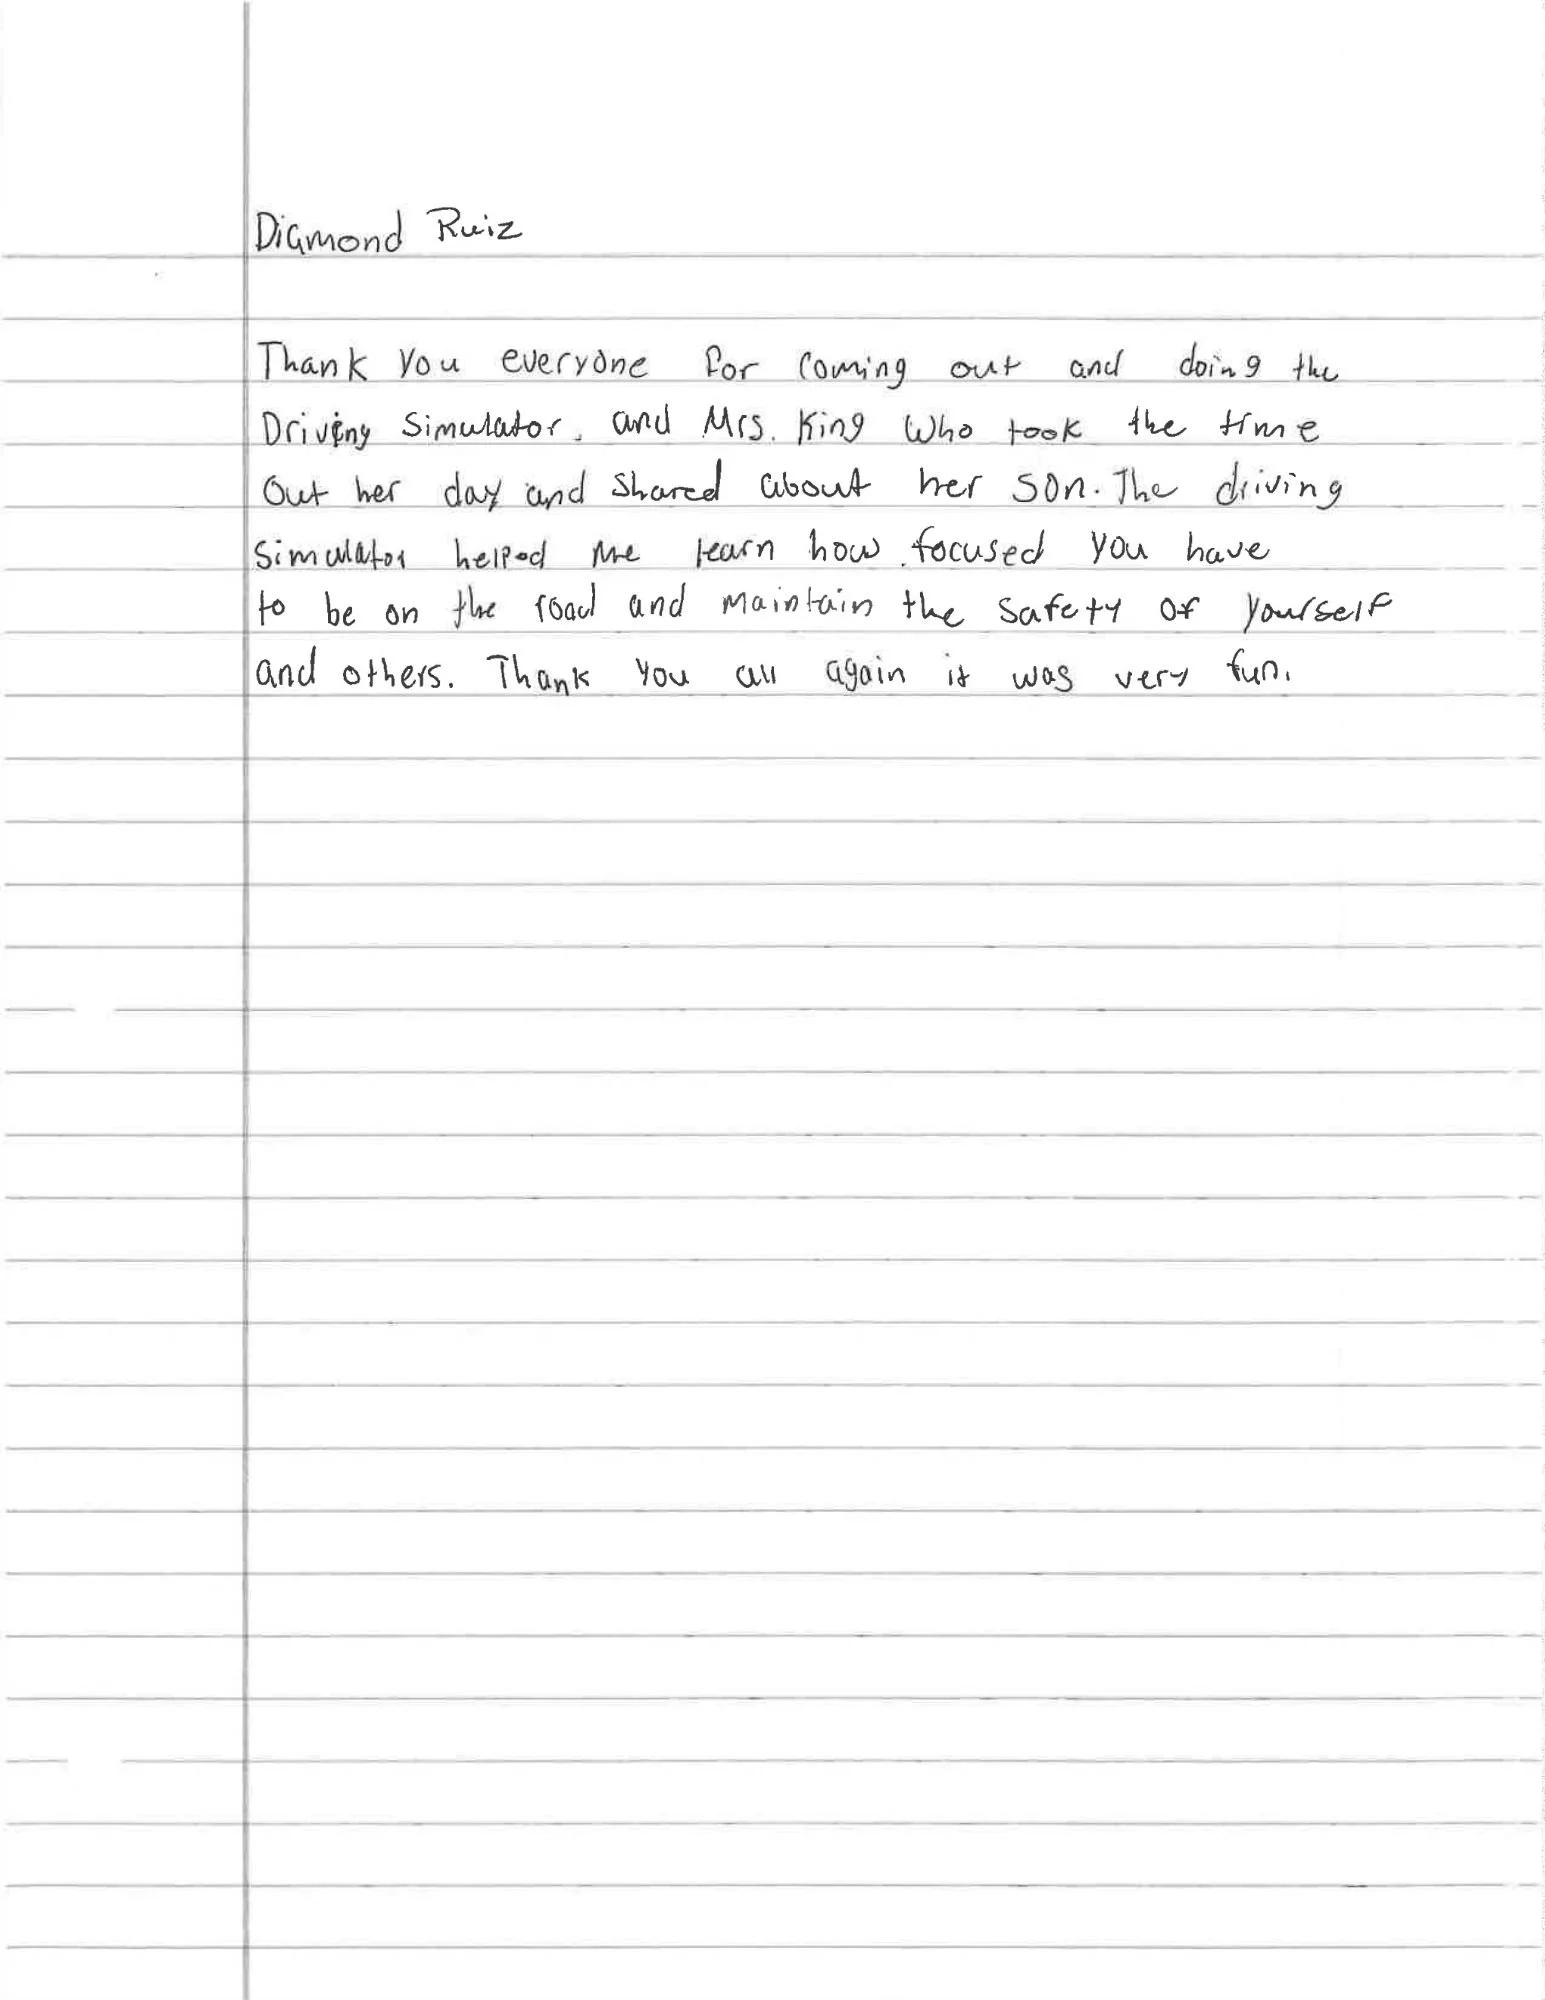 Diamond Ruiz
Thank you everyone for coming out and doing the
Driving Simulator, and Mrs. King who took the time
out her day and shared about her son. The driving
simulator helped me learn how focused you have
to be on the road and maintain the safety of yourself
and others. Thank you all again it was very fun.